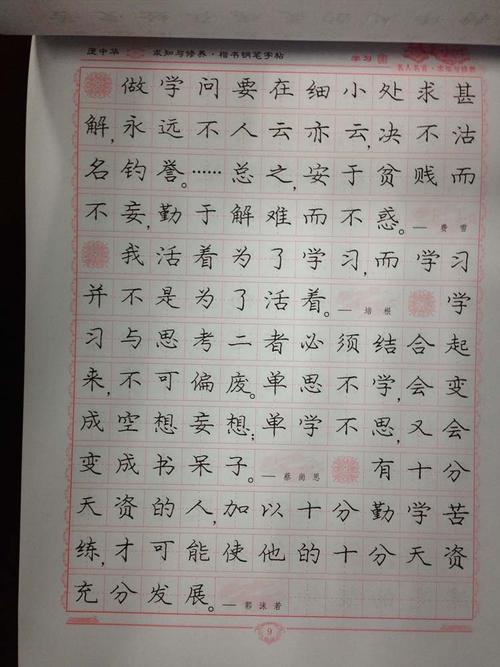 庞中华 求知与修养·楷书钢笔字帖 学习 名人名言·求知与修养
做学问要在细小处求甚
解,永远不人云亦云,决不沽
名钓誉。……总之,安于贫贱而
不妄,勤于解难而不惑。—费雪
我活着为了学习,而学习
并不是为了活着。—培根 学
习与思考二者必须结合起
来,不可偏废。单思不学,会变
成空想妄想;单学不思,又会
变成书呆子。—蔡尚思 有十分
天资的人,加以十分勤学苦
练,才可能使他的十分天资
充分发展。—郭沫若
9